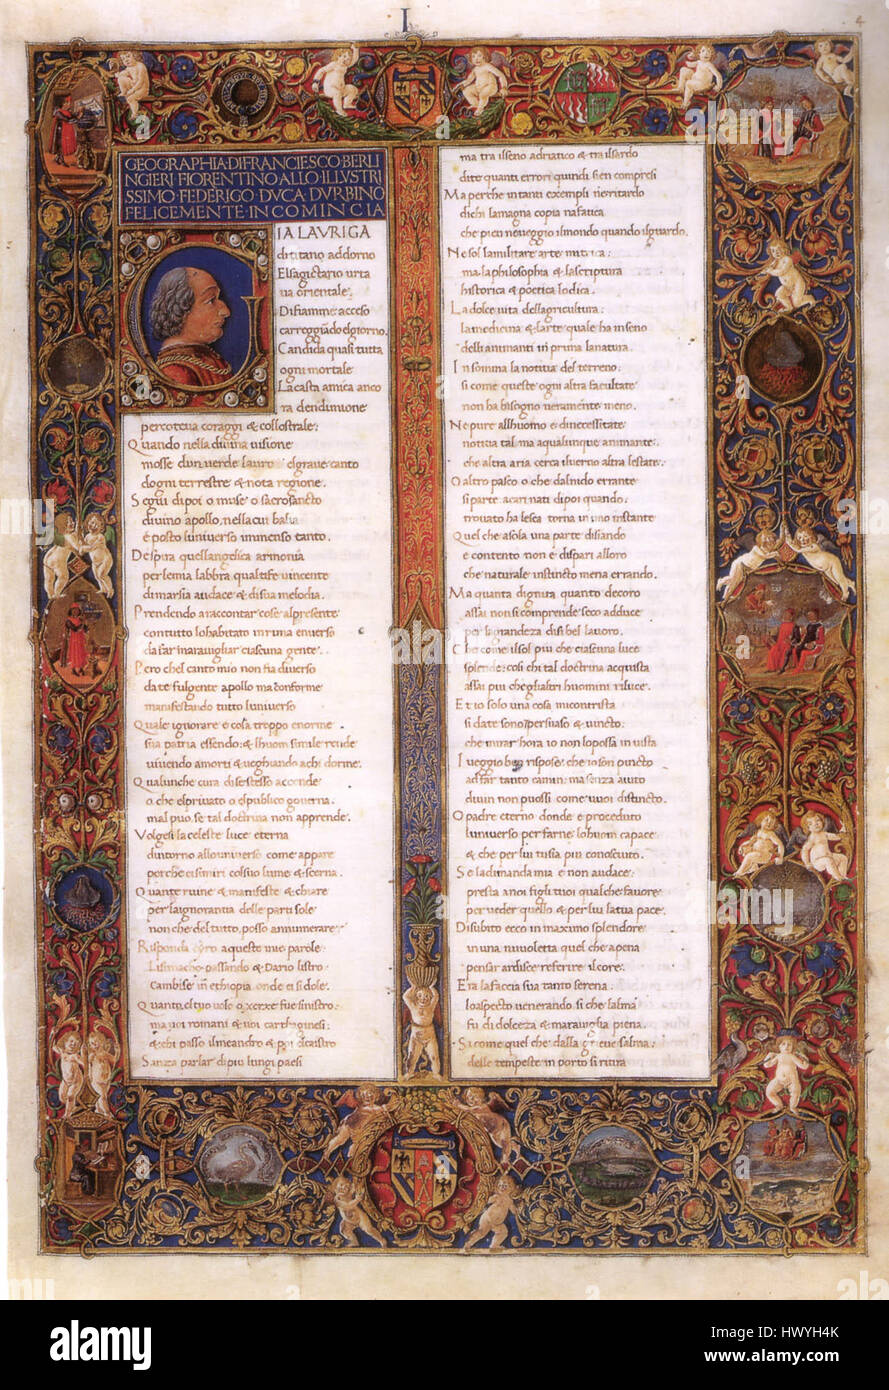 I
GEOGRAPHIA·DI FRANCIESCO·BERLI
NGIERI FIORENTINO ALLO ILLVSTRI
SSIMO·FEDERIGO·DVCA DVRBINO
FELICEMENTE·INCOMINCIA
IA LAVRIGA
di titano addorno
El sagictario urta
ua orientale:
Di fiamme acceso
Candida quasi tutta
ogni mortale
La casta amica anco
ra dendimione
percoteua coraggi & collostrale:
Quando nella diuina uisione
mosse dun uerde lauro el graue canto
dogni terrestre & nota regione.
Segui dipoi o muse o sacrosancto
diuino apollo, nella cui balia
è posto luniuerso immenso tanto.
Despira quellangelica armonia
per le mia labbra qual tife uincente
di marsia audace & di sua melodia.
Prendendo a raccontar cose al presente
con tutto lohabitato in rima en uerso
da far marauigliar ciascuna gente.
Pero chel canto mio non fia diuerso
da te fulgente apollo ma conforme
manifestando tutto luniuerso
Quale ignorare è cosa troppo enorme
sua patria essendo: & lhuom simile rende
uiuendo a morti & uegghiando a chi dorme.
Qualunche cura di se stesso accende
o che el priuato o el publico gouerna.
mal può, se tal doctrina non apprende.
Volgesi la celeste luce eterna
dintorno alluniuerso come appare
perche ci si miri col suo lume & scerna.
Quante ruine & manifeste & chiare
per la ignorantia delle parti sole
non che del tutto, posso annumerare?
Risponda cyro a queste mie parole.
Lisimacho passando & Dario listro.
Cambise in ethiopia onde ci si dole.
ma uoi romani & uoi carthaginesi:
Sanza parlar di piu lungi paesi
ma tra ilseno adriatico & tra ilsardo
dite quanti errori quindi sien compresi
Ma perche in tanti exempli ri
di chi la magna copia na fatica
che pien ne ueggio il mondo quando il guardo.
Ne sol la militare arte
ma la philosophia & la scriptura
historica & poetica lo dica.
La dolce uita dellagricultura:
la medicina & larte quale ha in seno
delli animanti in prima la natura.
In somma la notitia del terreno:
si come queste ogni altra facultate
non ha bisogno ueramente meno.
Ne pure allhuomo è di necessitate
notitia tal ma a qualunque animante:
che altra aria cerca il uerno altra lestate.
O altro pasco o che dal nido errante
si parte a car nati dipoi quando:
trouato ha lesca torna in uno instante
Quel che a sola una parte disiando
e contento non è dispari alloro
che naturale instincto mena errando.
Ma quanta dignita quanto decoro
assai non si comprende seco adduce
per la grandeza di si bel lauoro.
Che come il sol piu che ciascuna luce
splende: cosi chi tal doctrina acquista
assai piu che gli altri huomini riluce.
Et io solo una cosa mi contrista
si da te son persuaso & uincto:
che mirar hora io non lo possa in uista
I ueggio ben rispose: che io son puncto
a far tanto camin: ma senza aiuto
diuin non puossi come uuoi distincto.
O padre eterno donde è proceduto
luniuerso per farne lohuom capace
& che per lui tu sia piu conosciuto.
Se la dimanda mia è non audace:
presta a noi figli tuoi qualche fauore
per ueder quello & per lui la tua pace.
Di subito ecco in maximo splendore
in una nuuoletta quel che apena
pensar ardisce referire il core:
Era la faccia sua tanto serena:
lo aspecto uenerando si che salma
fu di dolceza & marauiglia piena.
Si come quel che dalla greue salma:
delle tempeste in porto si ritira
a
alamy stock photo
Image ID: HWYH4K
www.alamy.com